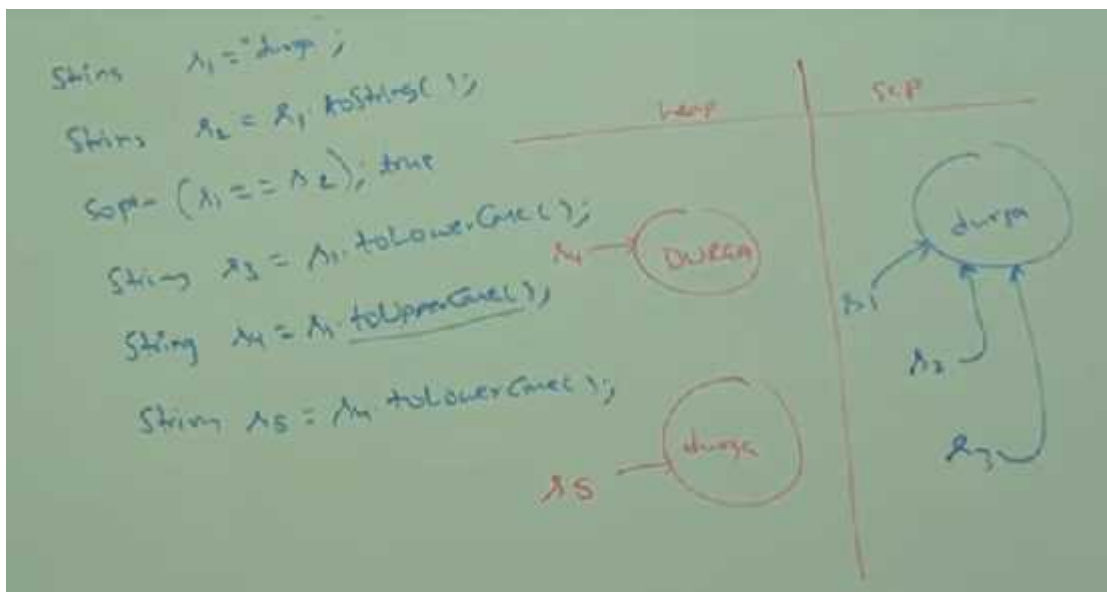 String s1 = "durga";
String s2 = s1.toString();
Sopln (s1 == s2); true
String s3 = s1.toLowerCase();
String s4 = s1.toUpperCase();
String s5 = s4.toLowerCase();
heap
SCP
s4
DURGA
s5
durga
durga
s1
s2
s3